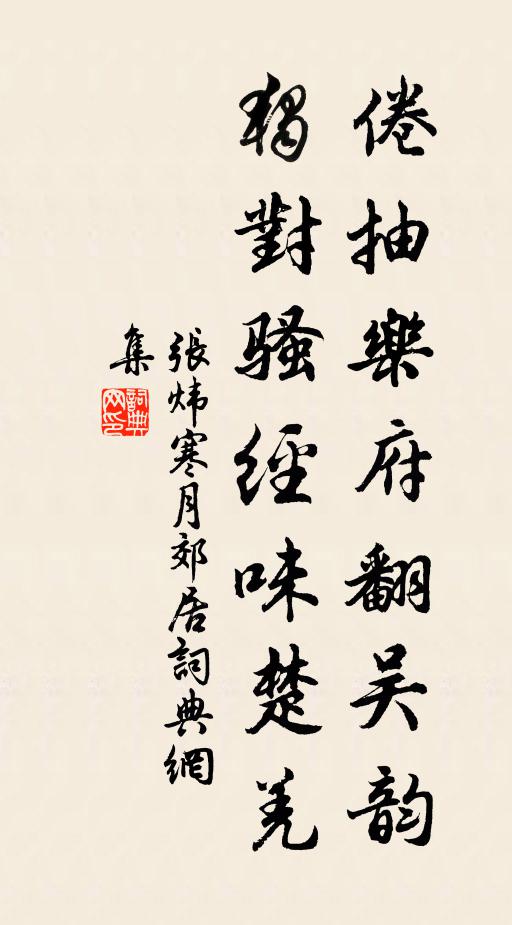 倦抽樂府翻吴韵
獨對騷經味楚羌
張炜寒月郊居詞典網
集
詞典
网印